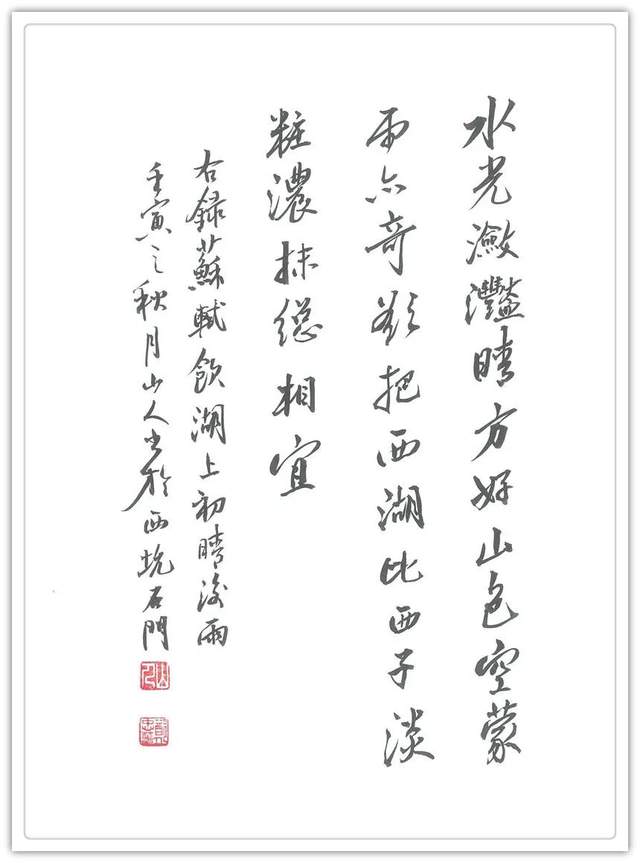 水光瀲灩晴方好山色空蒙
雨亦奇欲把西湖比西子淡
粧濃抹總相宜
右録蘇軾飲湖上初晴後雨
壬寅之秋月山人書於西坑石門
山人